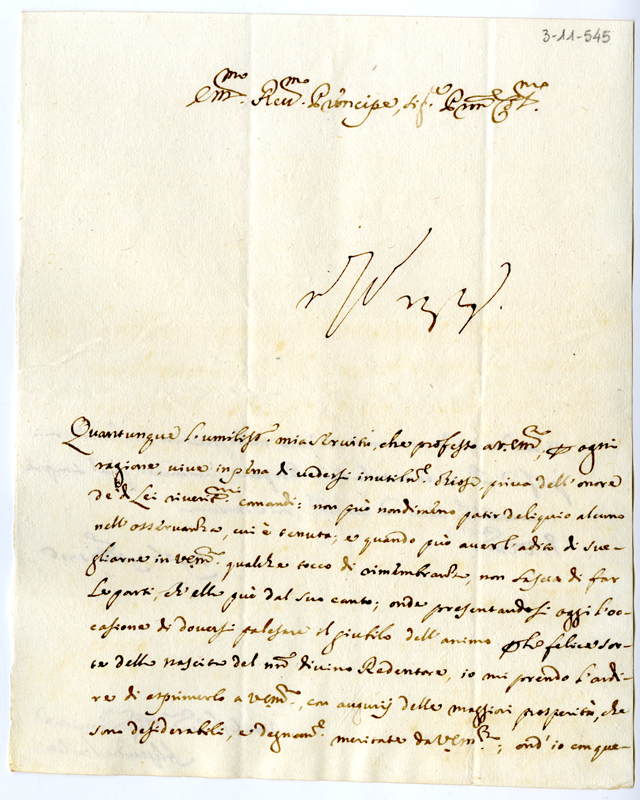 3-11-545
Em.mo Rev.mo Principe, Sig.r P.ron Col.mo
Quantunque l'umiliss.a mia servitù, che professo a V. Em.za, p ogni
ragione, vive in pena di vedersi inutilm.e oziosa, priva dell'onore
de di Lei riveri.mi comandi: non può nondimeno patir deliquio alcuno
nell'osservanza, cui è tenuta; e quando può aver l'adito di sve-
gliarne in V. Em.za qualche tocco di rimembranza, non lascia di far
le parti, ch'elle può dal suo canto; onde presentandosi oggi l'oc-
casione di doversi palesare il giubilo dell'animo p la felice sor-
te della nascita del n.ro divino Redentore, io mi prendo l'ardi-
re di esprimerlo a V. Em.za, con augurij delle maggiori prosperità, che
sono desiderabili, e degnam.e meritate da V. Em.za; ond'io con que-